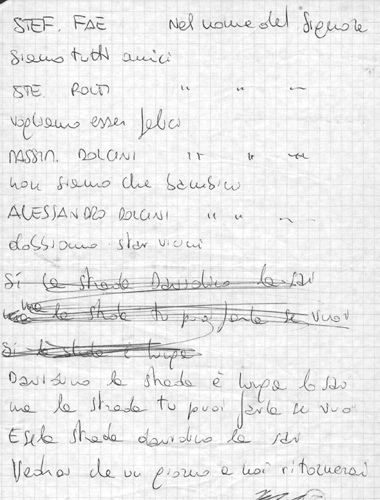 STEF. FAE Nel nome del Signore
siamo tutti amici
STE. " " "
vogliamo esser felici
MASSIM. DOLCINI " " "
non siamo che bambini
ALESSANDRO DOLCINI " " "
dobbiamo star vicini
Si la strada Davidino la sai
ma la strada tu puoi farla se vuoi
Si la strada è lunga
Davidino la strada è lunga lo sai
ma la strada tu puoi farla se vuoi
E se la strada davidino la sai
Vedrai che un giorno a noi ritornerai